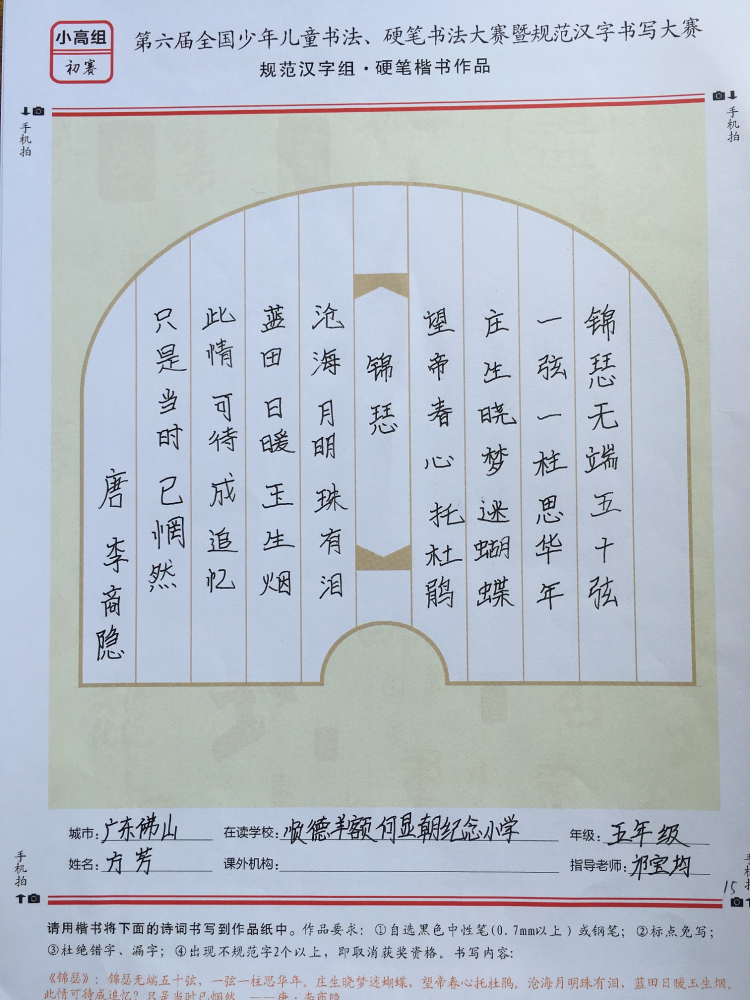 小高组
初赛
第六届全国少年儿童书法、硬笔书法大赛暨规范汉字书写大赛
规范汉字组·硬笔楷书作品
手机拍
手机拍
锦瑟无端五十弦
一弦一柱思华年
庄生晓梦迷蝴蝶
望帝春心托杜鹃
锦瑟
沧海月明珠有泪
蓝田日暖玉生烟
此情可待成追忆
只是当时已惘然
唐 李商隐
城市：广东佛山 在读学校：顺德羊额何显朝纪念小学 年级：五年级
姓名：方芳 课外机构： 指导老师：邓宝均
手机拍
手机拍
15
请用楷书将下面的诗词书写到作品纸中。作品要求：①自选黑色中性笔(0.7mm以上)或钢笔；②标点免写；
③杜绝错字、漏字；④出现不规范字2个以上，即取消获奖资格。书写内容：
《锦瑟》：锦瑟无端五十弦，一弦一柱思华年。庄生晓梦迷蝴蝶，望帝春心托杜鹃。沧海月明珠有泪，蓝田日暖玉生烟。
此情可待成追忆？只是当时已惘然。——唐·李商隐